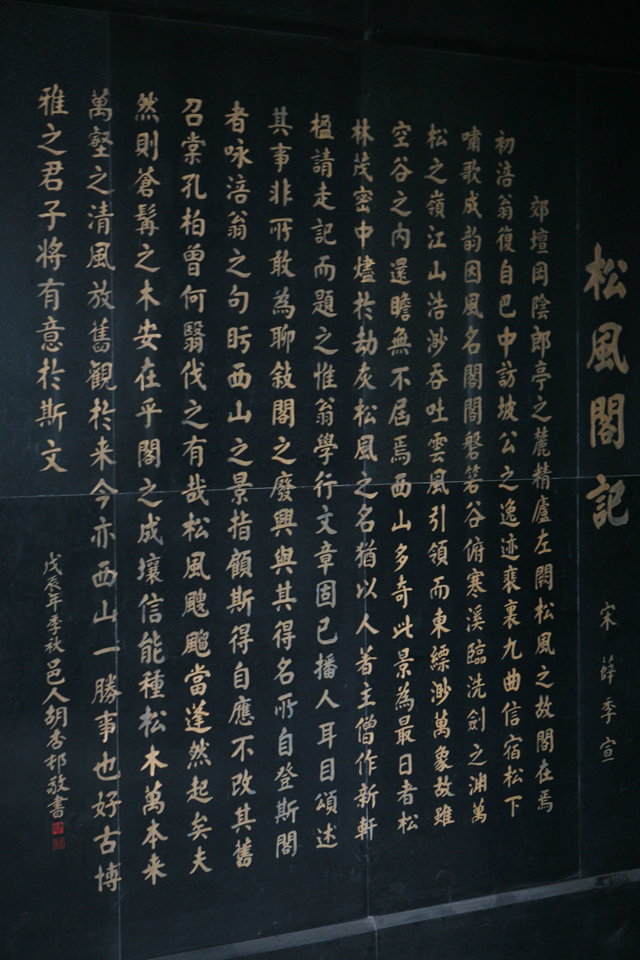 松風閣記
宋 薛季宣
郊壇岡陰郎亭之麓精廬左闕松風之故閣在焉
初涪翁復自巴中訪坡公之逸迹裵裏九曲信宿松下
嘯歌成韵因風名閣閣磐箬谷俯寒溪臨洗劍之渊萬
松之嶺江山浩渺吞吐雲風引領而東縹渺萬象故雖
空谷之内還瞻無不屆焉西山多奇此景為最日者松
林茂密中燼於劫灰松風之名猶以人著主僧作新軒
楹請走記而題之惟翁學行文章固已播人耳目頌述
其事非所敢為聊敍閣之廢興與其得名所自登斯閣
者咏涪翁之句眄西山之景指顧斯得自應不改其舊
召棠孔柏曾何翳伐之有哉松風颼飀當蓬然起矣夫
然則蒼髯之木安在乎閣之成壤信能種松木萬本来
萬壑之清風放舊觀於来今亦西山一勝事也好古博
雅之君子将有意於斯文
戊辰年季秋邑人胡香邨敬書